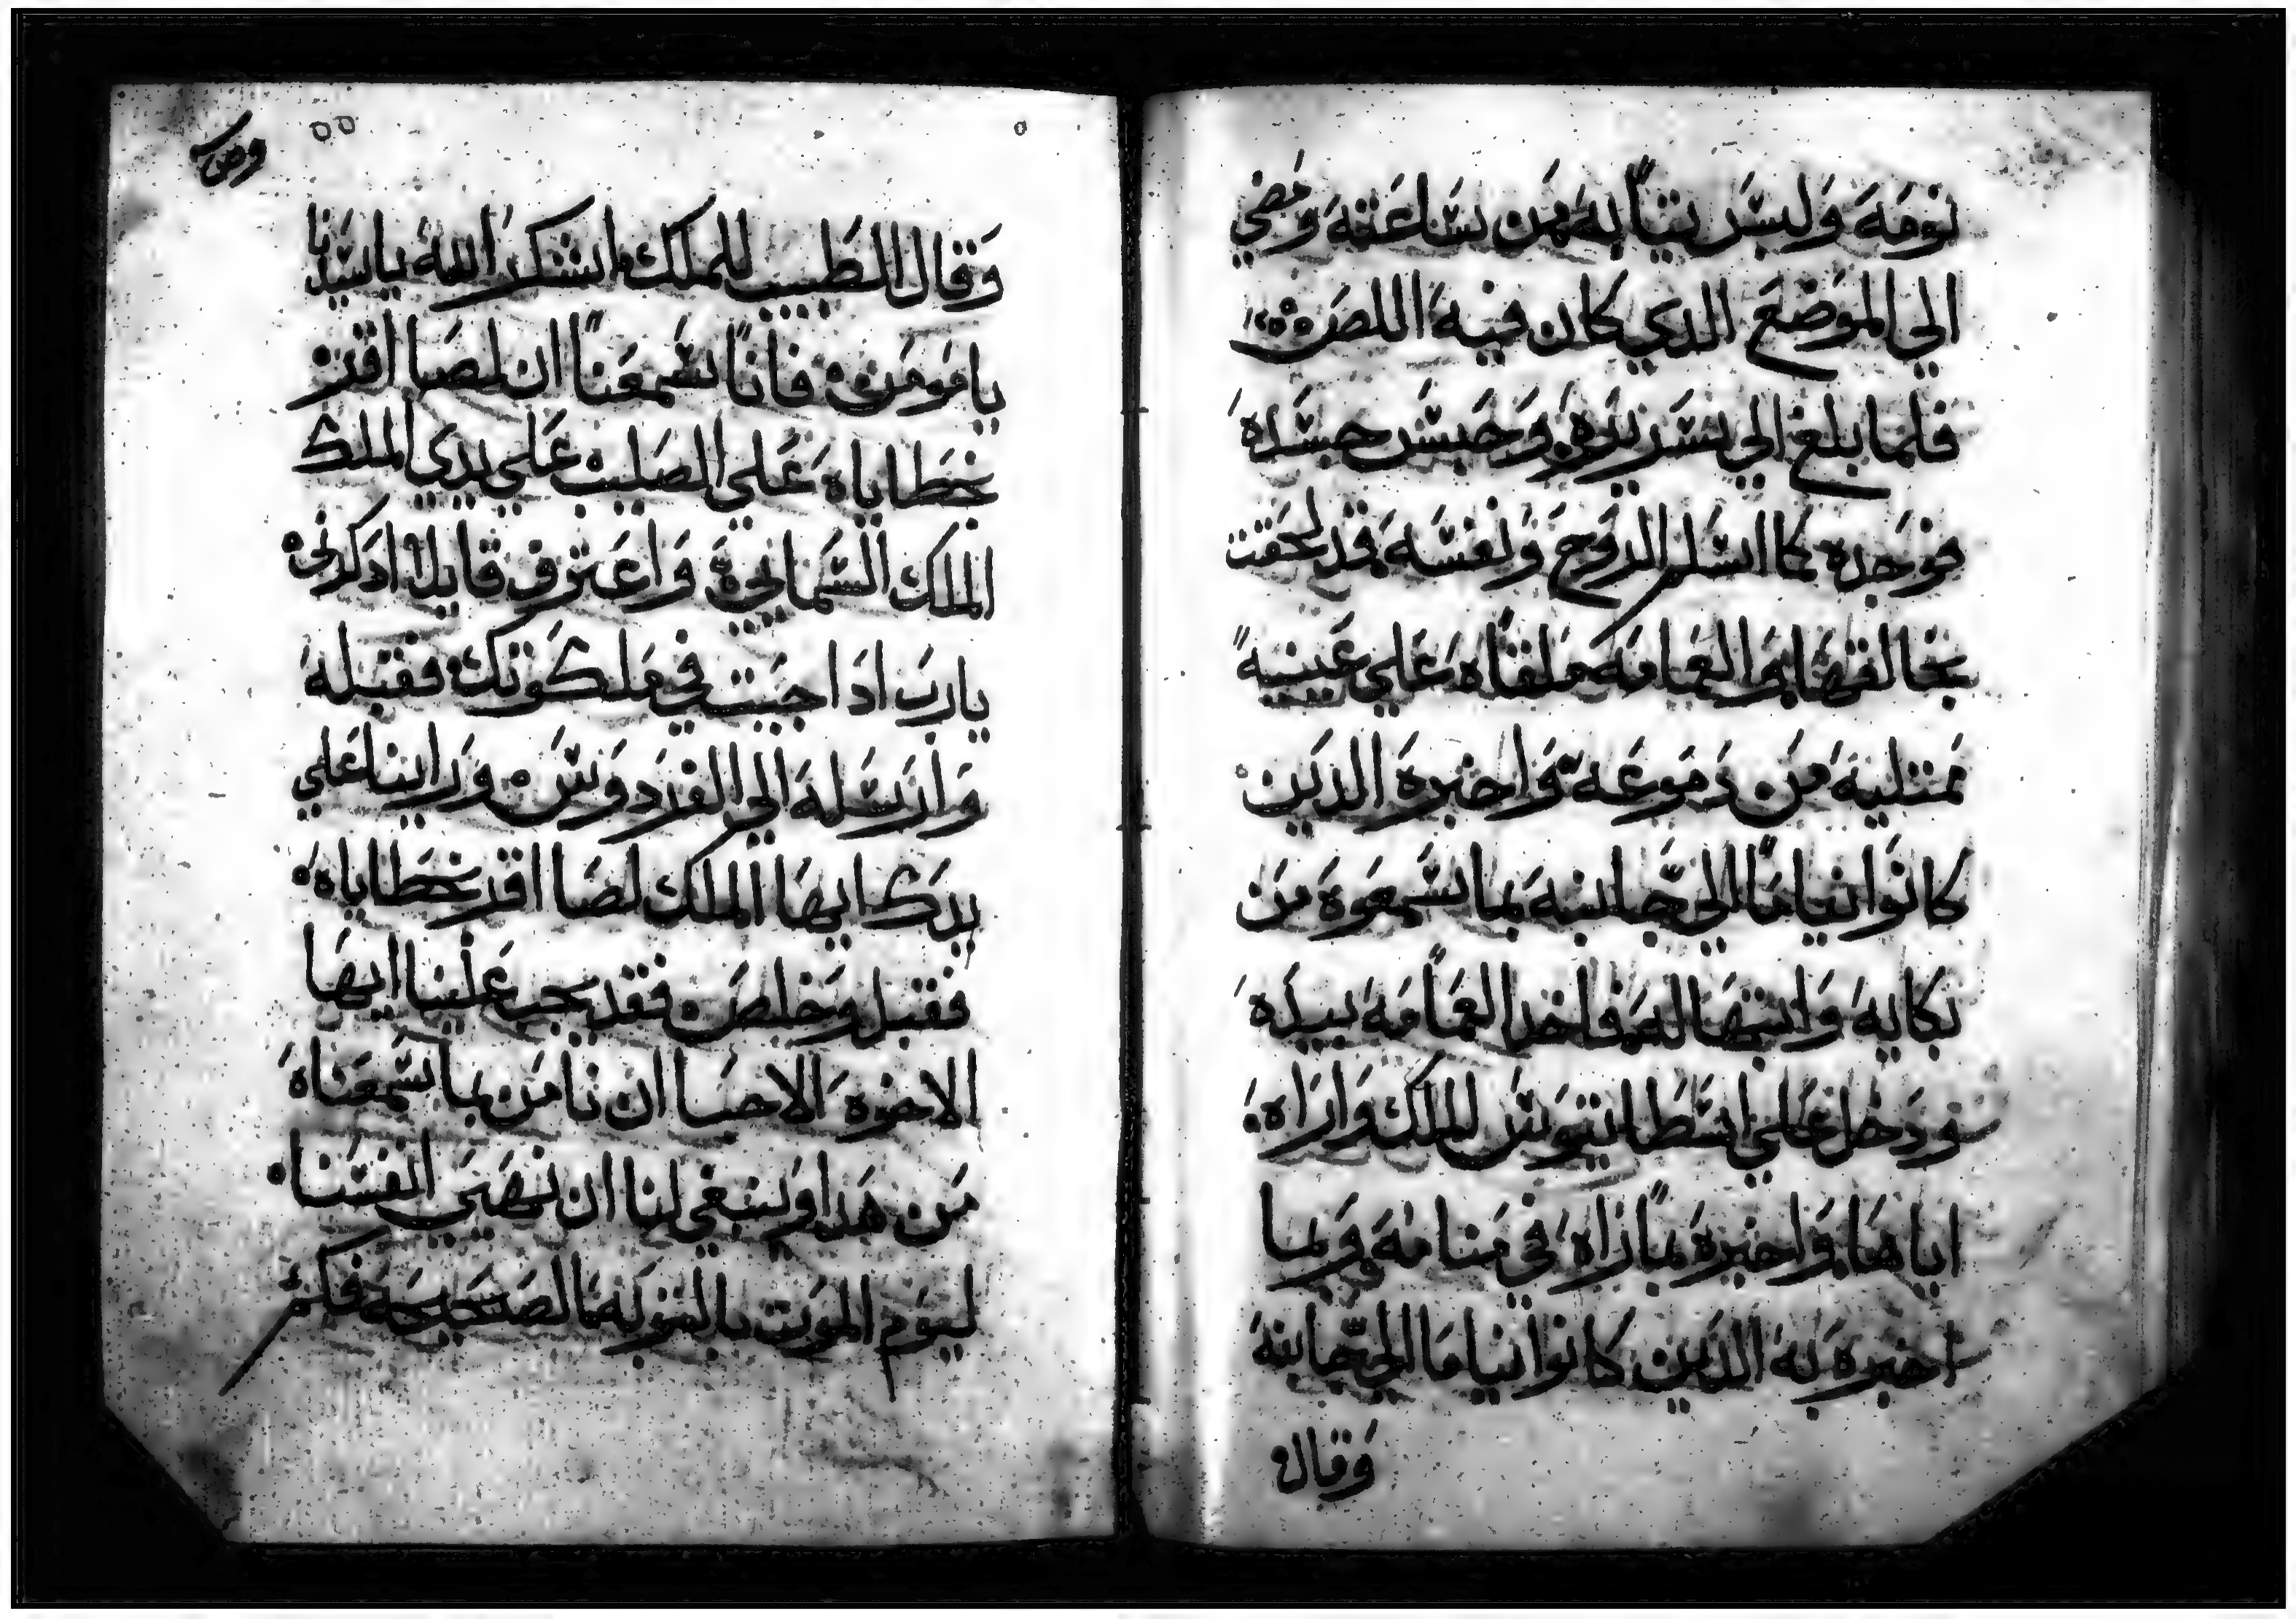 نومه ولبس تيابه من ساعته ومضي
الي الموضع الدي كان فيه اللص
فلما بلغ الي سريره وحبس جسده
فوجده كما اسلم الروح ونفسه قد لحقت
بخالقها والعمامه ملقاه علي عينيه
ممتليه من دموعه واخبره الدين
كانوا نياما الي جانبه بما سمعوه من
بكايه وابتهاله فاخد العمامه بيده
ودخل علي اسطاتيوس الملك واراه
اياها واخبره بما راه في منامه وبما
اخبره به الدين كانوا نياما الي جانبه
وقال
٥٥
وقال الطبيب للملك اشكر الله ياسيدنا
يامومن فاننا سمعنا ان لصا اقر
بخطاياه علي الصليب علي يدي الملك
الملك السمايي واعترف قايلا ادكرني
يارب ادا جيت في ملكوتك فقبله
وارسله الي الفردوس وراينا علي
يدك ايها الملك لصا اقر بخطاياه
فقبل وخلص فقد يجب علينا ايها
الاخوه الاحبا ان نامن بما سمعناه
من هدا وينبغي لنا ان نهيي انفسنا
ليوم الموت بالتوبه الصحيحه فكم